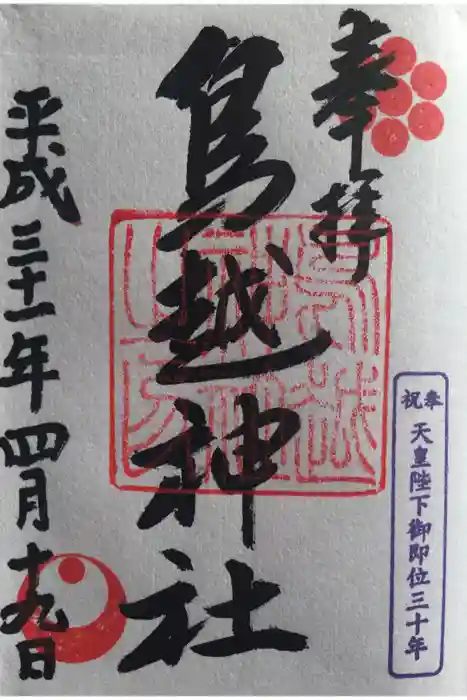 奉祝
天皇陛下御即位三十年
奉拝
鳥越神社
平成三十一年四月十九日